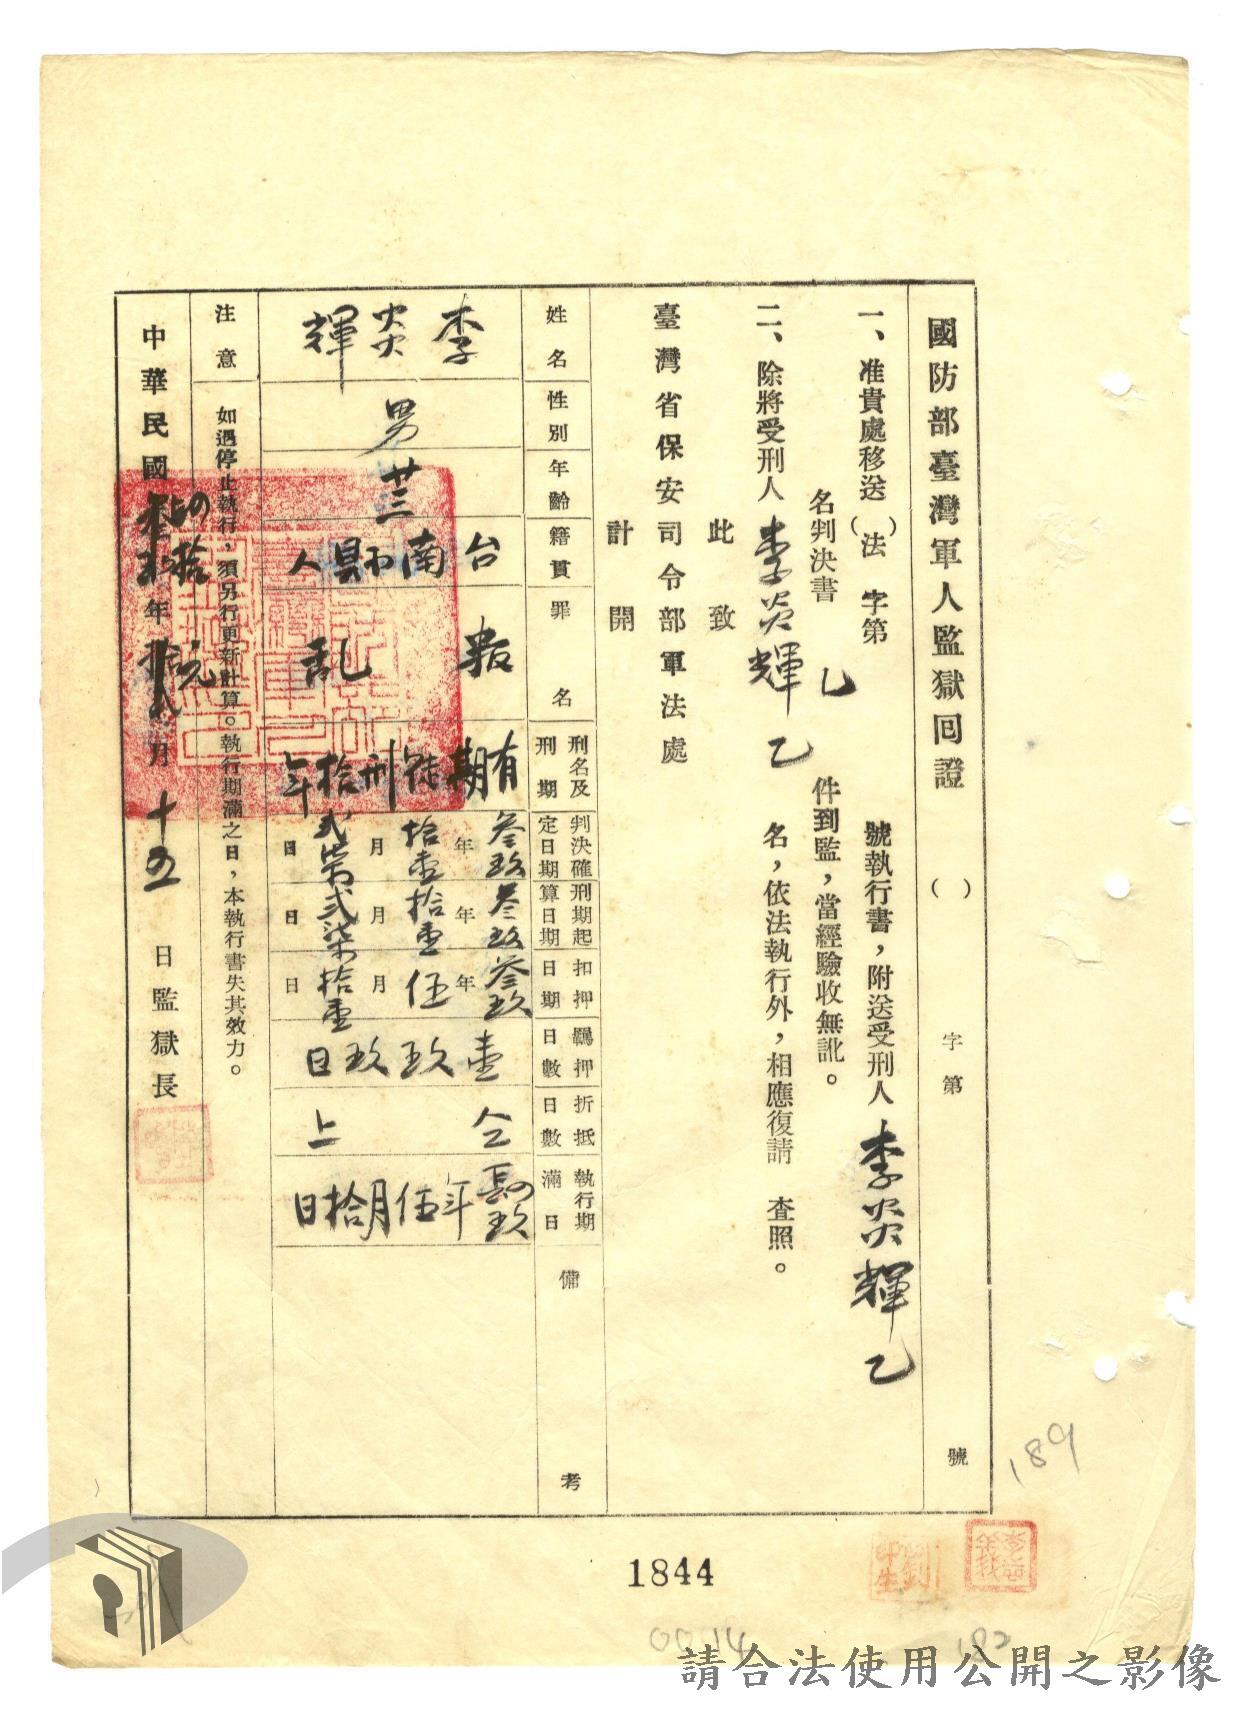 國防部臺灣軍人監獄囘證（　）字第　號
一、准貴處移送（　）法字第　號執行書，附送受刑人李炎輝乙
名判決書乙件到監，當經驗收無訛。
二、除將受刑人李炎輝乙名，依法執行外，相應復請　查照。
此致
臺灣省保安司令部軍法處
計開
姓名　李炎輝
性別　男
年齡　廿三
籍貫　台南縣人
罪名　叛乱
刑名及刑期　有期徒刑拾年
判決確定日期　叁玖年拾壹月弍柒日
刑期起算日期　叁玖年拾壹月弍柒日
扣押日期　叁玖年伍月拾壹日
羈押日數　壹玖玖日
折抵日數　仝上
執行期滿日　肆玖年伍月拾日
備考
注意　如遇停止執行，須另行更新計算。執行期滿之日，本執行書失其效力。
中華民國肆拾年元月十五日監獄長
189
1844
0014
182
請合法使用公開之影像